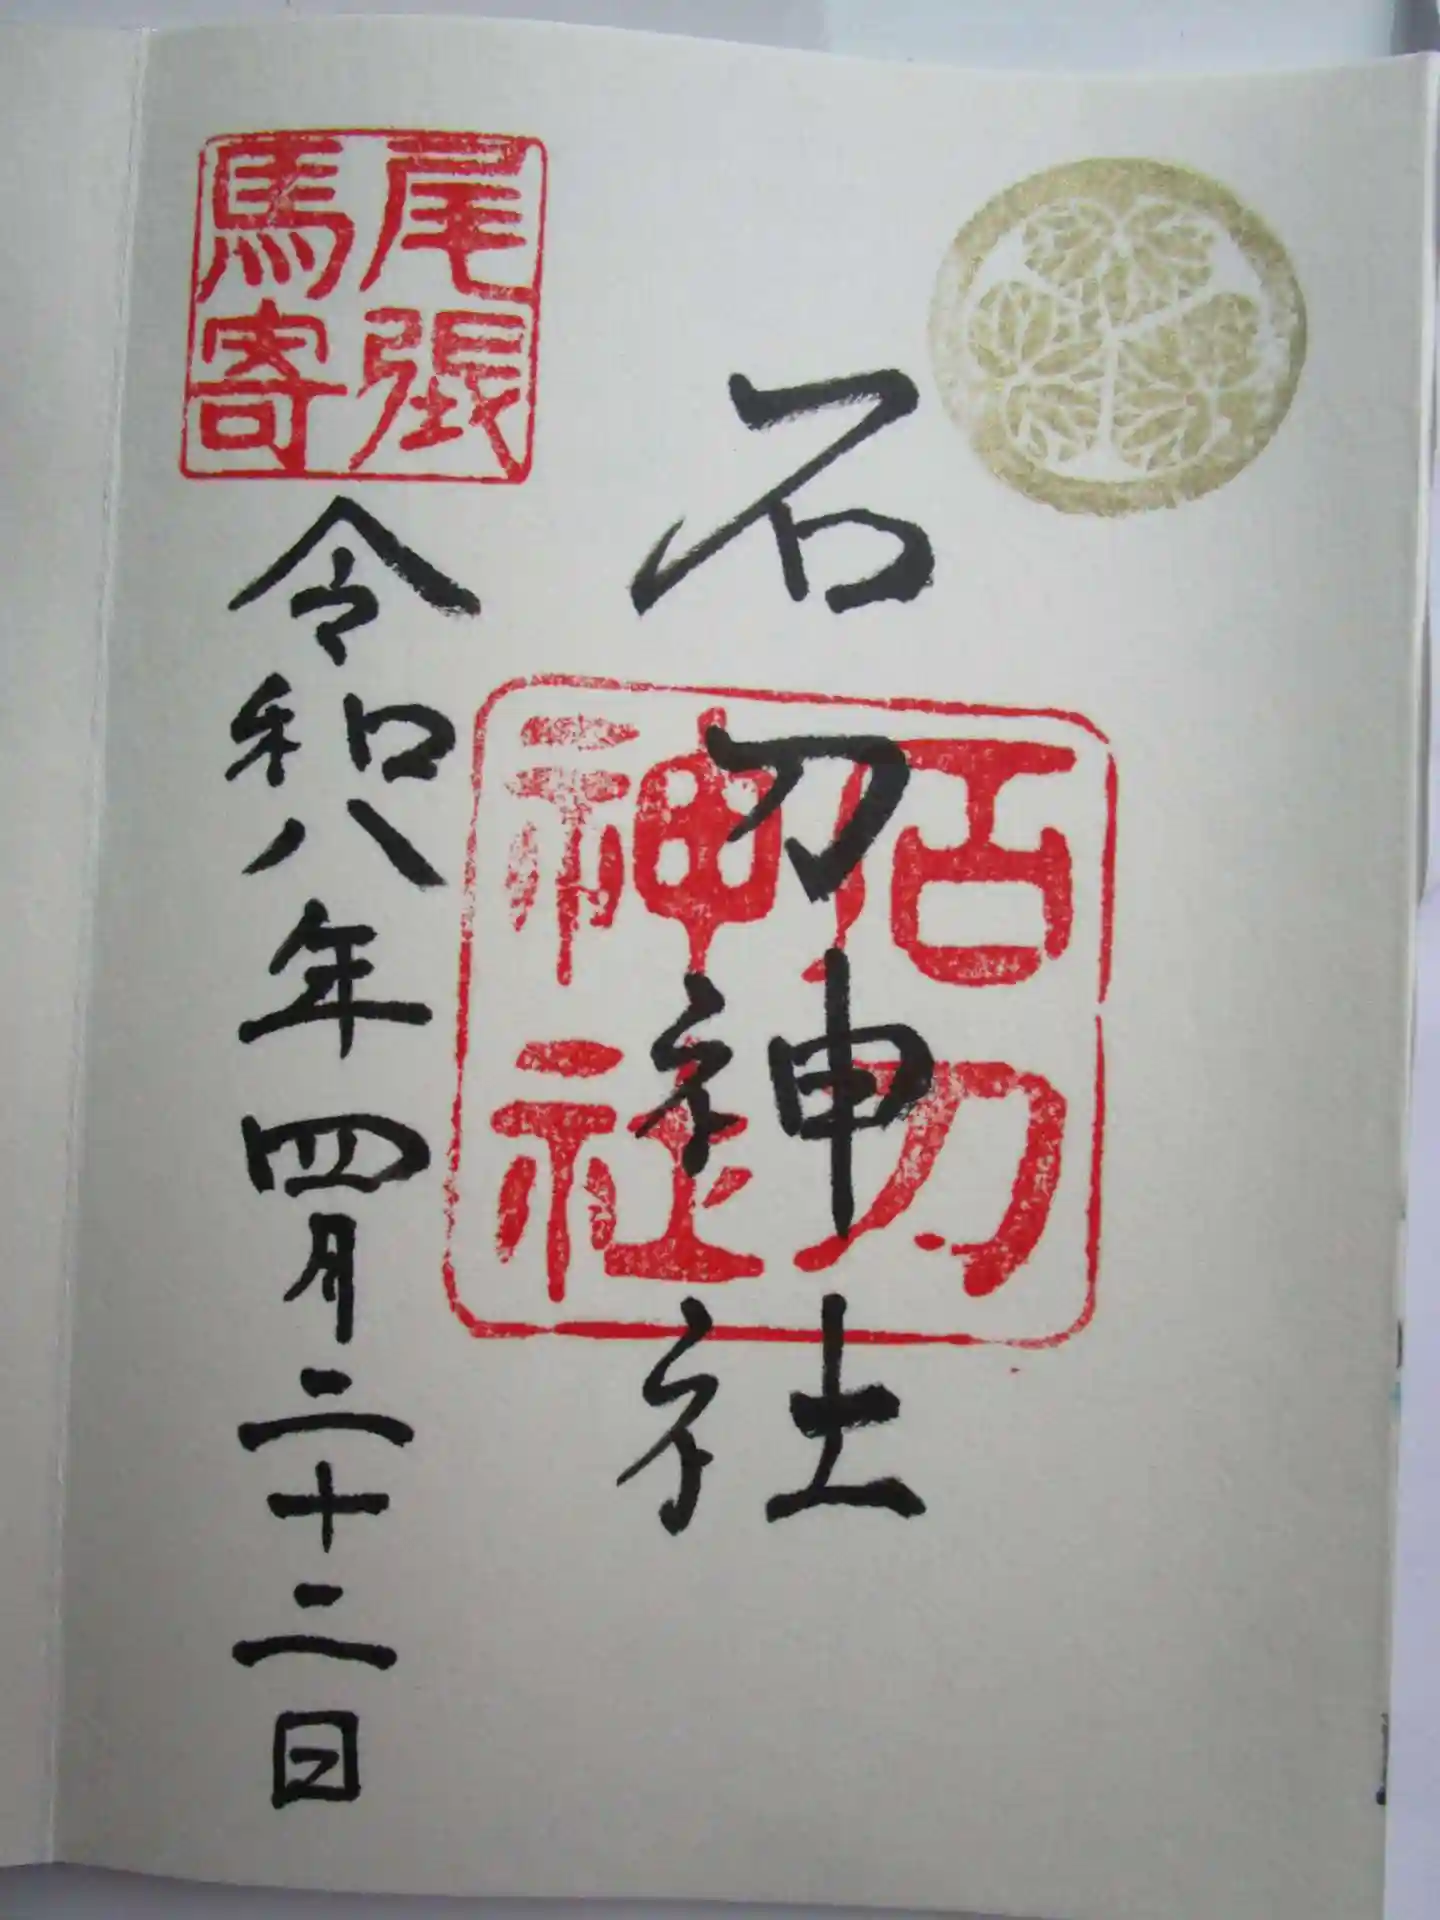 石刀神社
石刀神社
尾張
馬寄
令和八年四月二十二日